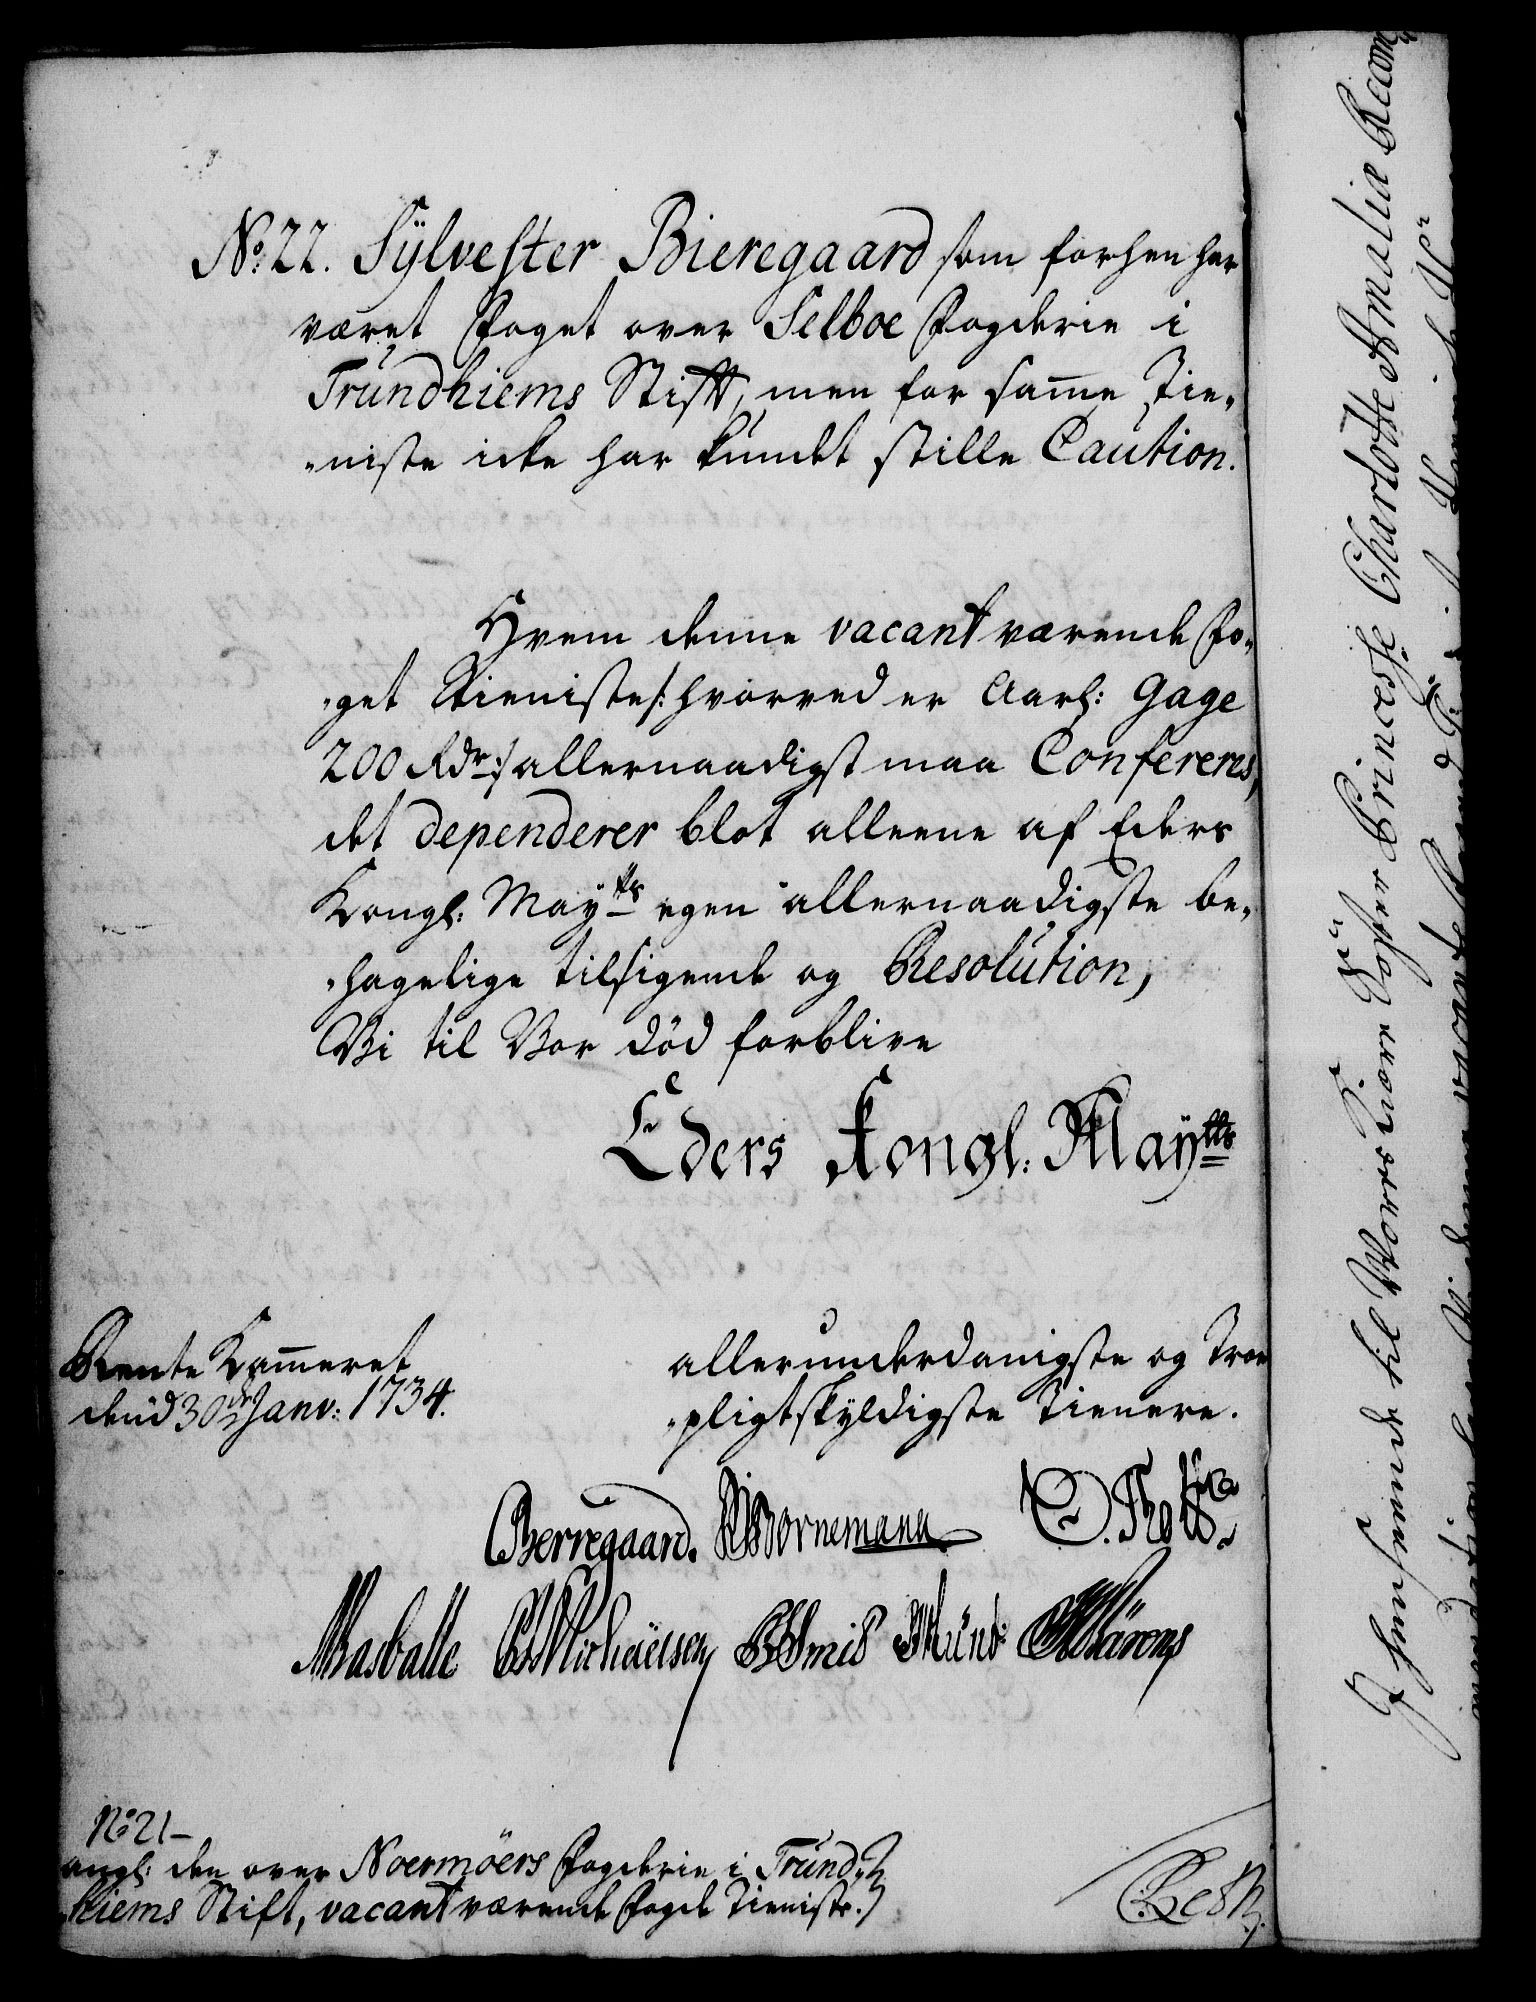 No: 22. Sÿlvester Bieregaard som forhen har
været Foget over Selboe Fogderie i
Trundhiems Stifft, men for samme Tie-
-niste icke har kundet stille Caution.
Hvem denne vacant værende Fo-
-get Tieniste /: hvorved er Aarl: Gage
200 Rdr :/ allernaadigst maa Confereres,
det dependerer blot alleene af Eders
Kongl: Mayts egen allernaadigste be-
-hagelige tilsigende og Resolution,
Vi til Vor død forblive
Eders Kongl: Maÿtts
Rente Kammeret
den 30te Janv: 1734.
allerunderdanigste og Troe
-pligtskyldigste Tienere.
Berregaard. Wornemann O. Thott
Basballe Michaelsen Smid Münt
No 21-
angl: den over Noermöers Fogderie i Trund-
hiems Stift, vacant værende Fogde Tieniste.
Resol
Jhensende til Vores Kiære Søster Princesse Charlotte Amaliæ Recom